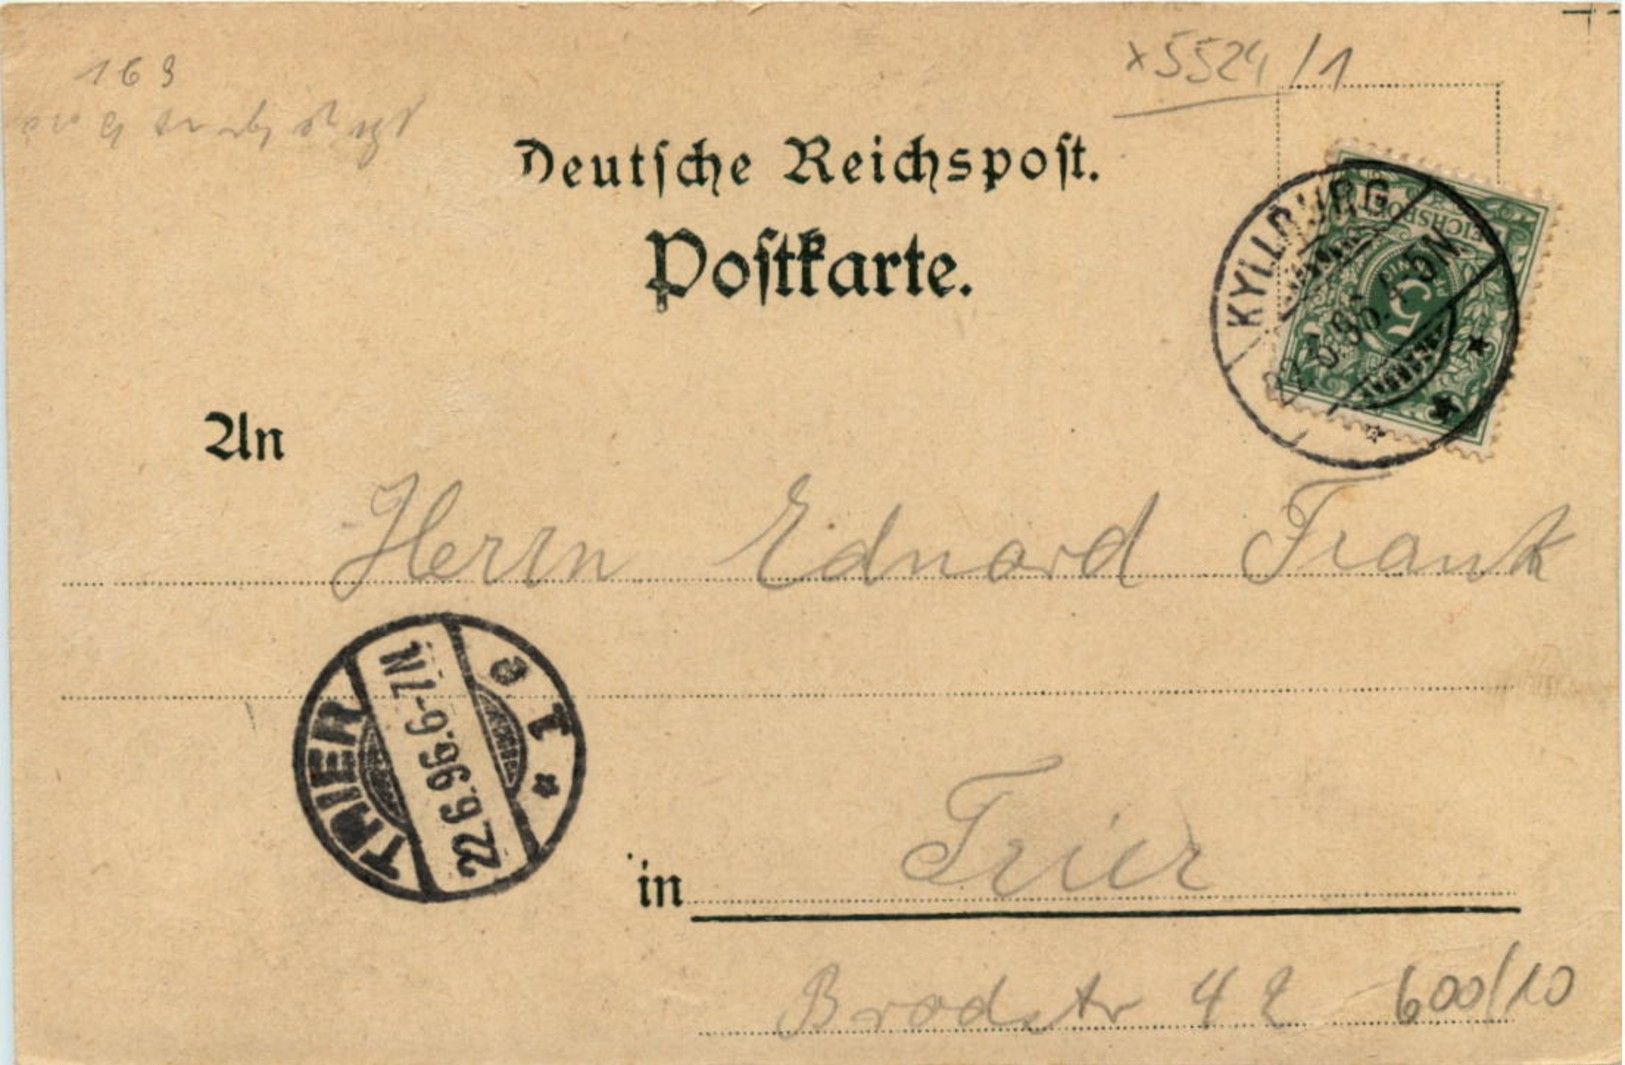 169
x5524/1
Deutsche Reichspost.
Postkarte.
KYLLBURG
22.6.96. 4-5N
REICHSPOST
5
An
Herrn Eduard Frank
TRIER
22.6.96.6-7N.
* 1 c
in Trier
Brodstr 42
600/10